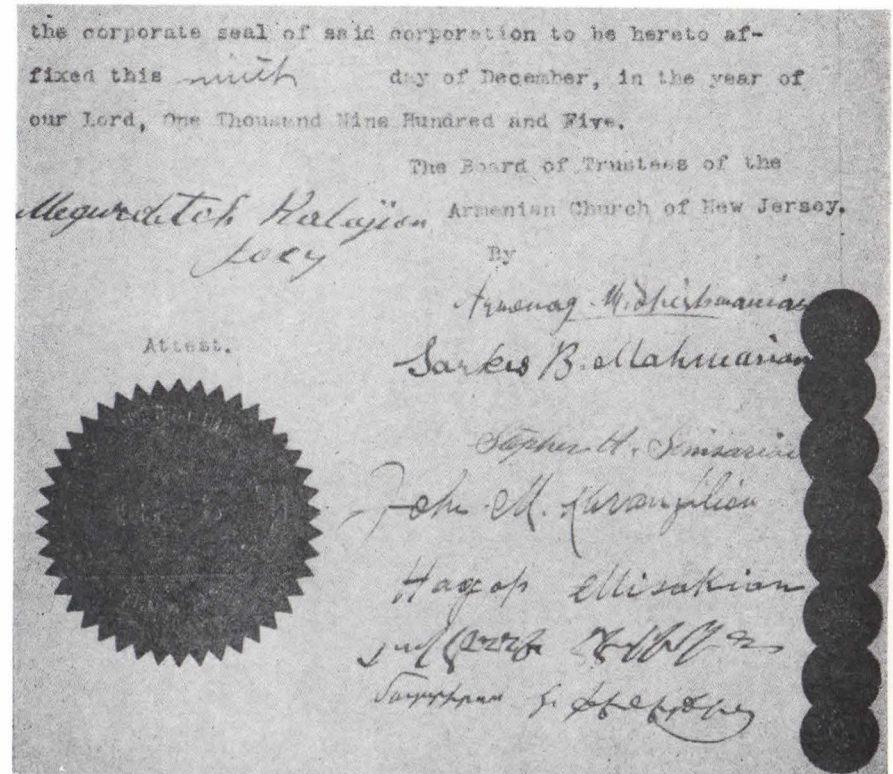 the corporate seal of said corporation to be hereto af-
fixed this ninth day of December, in the year of
our Lord, One Thousand Nine Hundred and Five.
The Board of Trustees of the
Armenian Church of New Jersey.
Megurditch Kalajian
Secy
By
Armenag M.
Attest.
Sarkis B. Mahmarian
Stephen H. Simsarian
John M.
Hagop Misakian